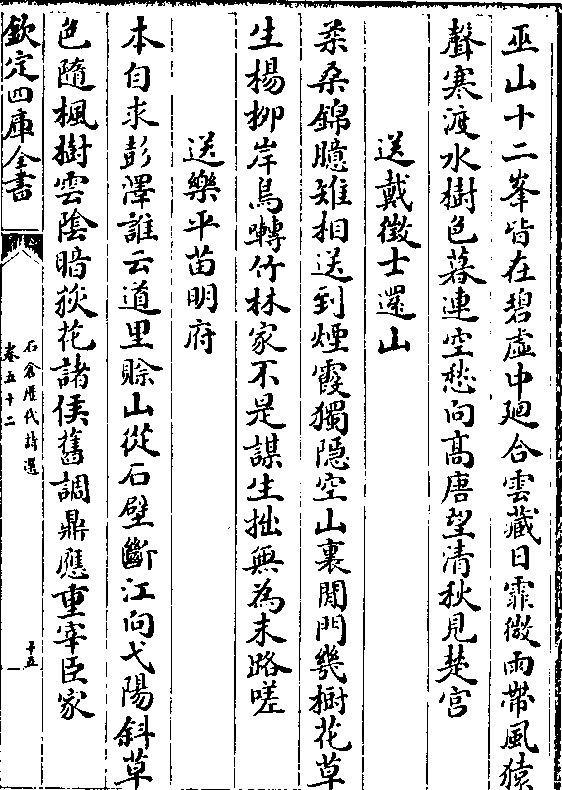 巫山十二峯皆在碧虛中廻合雲藏日霏微雨帶風猿
聲寒渡水樹色暮連空愁向高唐望清秋見楚宮
送戴徵士還山
柔桑錦臆雉相送到煙霞獨隠空山裏閒門幾樹花草
生楊栁岸鳥囀竹林家不是謀生拙無為末路嗟
送樂平苗明府
本自求彭澤誰云道里賖山從石壁斷江向弋陽斜草
色隨楓樹雲陰暗荻花諸侯舊調鼎應重宰臣家
欽定四庫全書
石倉歴代詩選
卷五十二
十五